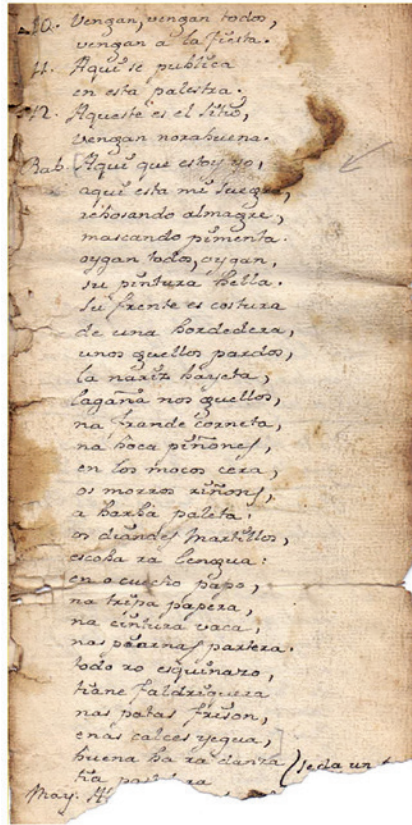 10. Vengan, vengan todos,
vengan a la fiesta.
11. Aqui se publica
en esta palestra.
12. Aqueste es el sitio,
vengan norabuena.
Bab. Aqui que estoy yo,
aqui esta mi suegra,
rebosando almagre,
mascando pimenta.
oygan todos, oygan,
su pintura bella.
Su frente es costura
de una bordedera,
unos guellos pardos,
la nariz bayeta,
lagaña nos guellos,
na frande corneta,
na boca piñones,
en los mocos cera,
os morros riñons,
a barba paleta:
os diandes martillos,
escoba ra lengua:
en o cuecho papo,
na tripa papera,
na cintura vaca,
nas paarnas partera.
todo ro esquinazo,
tiane faldriguera
nas patas frison,
enas calces yegua,
buena ba ra danza (seda un
tia
May.